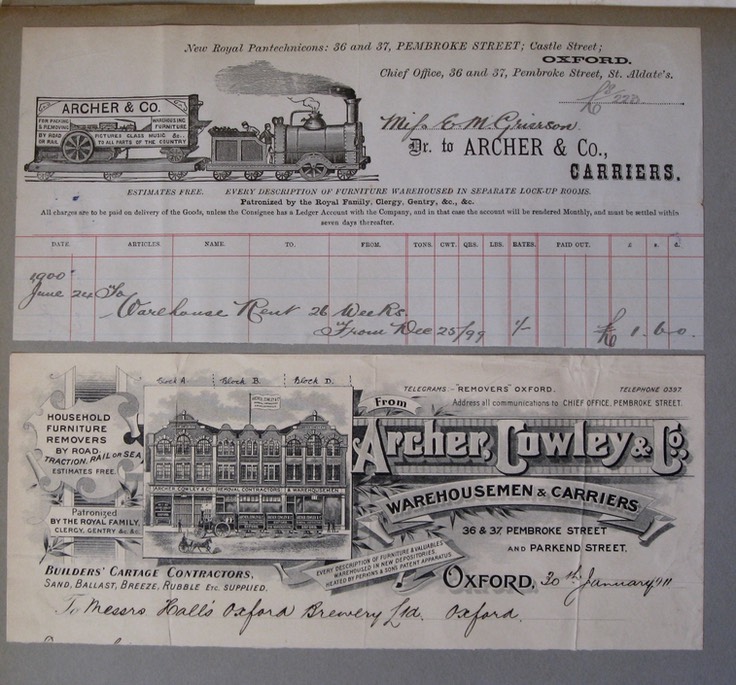 New Royal Pantechnicons: 36 and 37, PEMBROKE STREET; Castle Street;
OXFORD.
Chief Office, 36 and 37, Pembroke Street, St. Aldate's.
220
ARCHER & CO.
FOR PACKING & REMOVING BY ROAD OR RAIL
WAREHOUSING FURNITURE PICTURES GLASS MUSIC &c. TO ALL PARTS OF THE COUNTRY
Miss E. M. Grierson
Dr. to ARCHER & Co.,
CARRIERS.
ESTIMATES FREE. EVERY DESCRIPTION OF FURNITURE WAREHOUSED IN SEPARATE LOCK-UP ROOMS.
Patronized by the Royal Family, Clergy, Gentry, &c., &c.
All charges are to be paid on delivery of the Goods, unless the Consignee has a Ledger Account with the Company, and in that case the account will be rendered Monthly, and must be settled within
seven days thereafter.
DATE. ARTICLES. NAME. TO. FROM. TONS. CWT. QRS. LBS. RATES. PAID OUT. £ s. d.
1900
June 24 To
Warehouse Rent 26 Weeks
From Dec 25/99 1/- £ 1. 6. 0
Block A Block B. Block D.
TELEGRAMS:- "REMOVERS" OXFORD. TELEPHONE 0397.
From
Address all communications to CHIEF OFFICE, PEMBROKE STREET.
HOUSEHOLD
FURNITURE
REMOVERS
BY ROAD,
TRACTION, RAIL OR SEA
ESTIMATES FREE.
Archer, Cowley & Co.
ARCHER COWLEY & Co REMOVAL CONTRACTORS & WAREHOUSEMEN
WAREHOUSEMEN & CARRIERS
Patronized
BY THE ROYAL FAMILY,
CLERGY, GENTRY &c &c
36 & 37 PEMBROKE STREET
AND PARKEND STREET,
EVERY DESCRIPTION OF FURNITURE & VALUABLES
WAREHOUSED IN NEW DEPOSITORIES.
HEATED BY PERKINS & SONS PATENT APPARATUS
BUILDERS' CARTAGE CONTRACTORS,
SAND, BALLAST, BREEZE, RUBBLE ETC. SUPPLIED.
OXFORD, 30th January '11
To Messrs Hall's Oxford Brewery Ltd. Oxford.